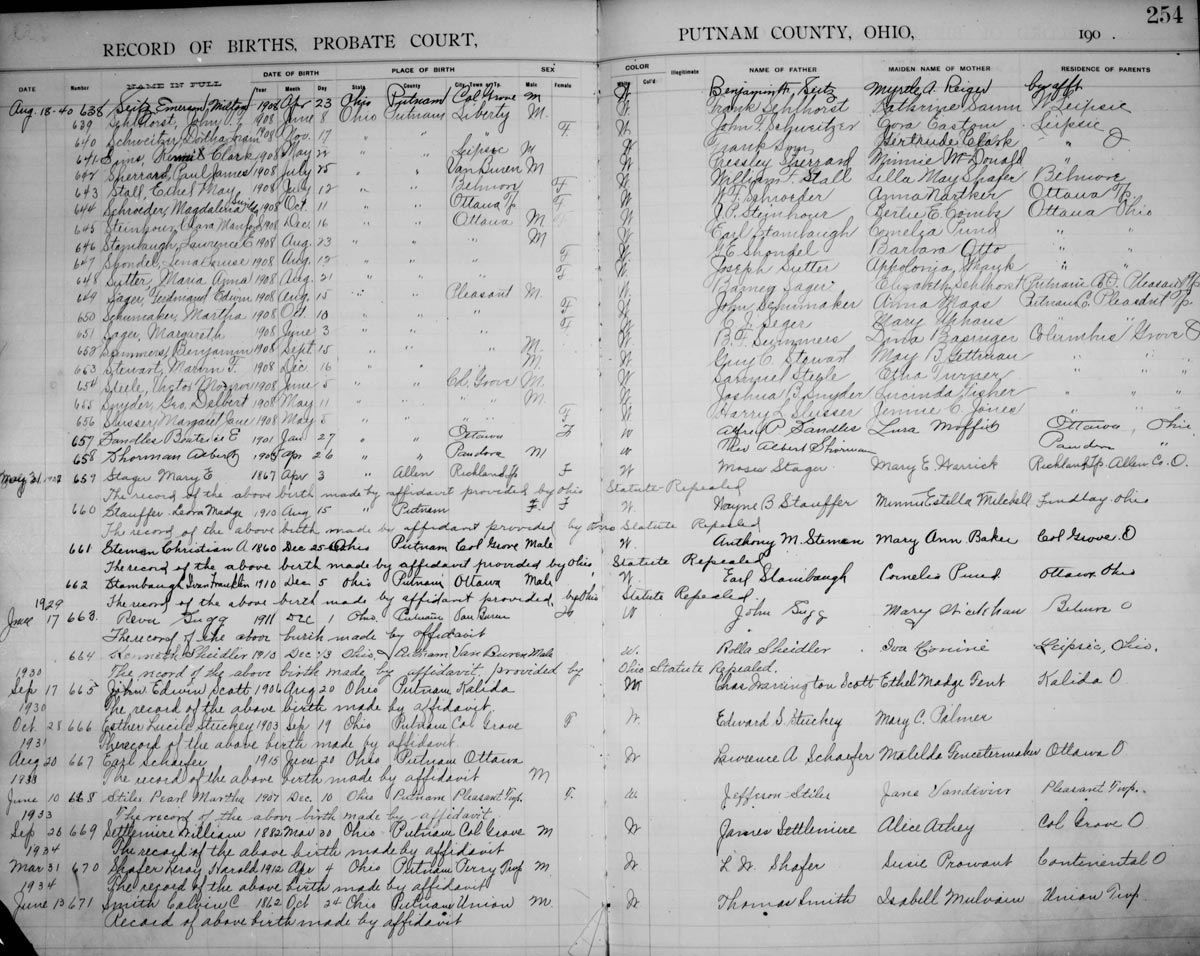 254
RECORD OF BIRTHS, PROBATE COURT, PUTNAM COUNTY, OHIO, 190 .
DATE Number NAME IN FULL DATE OF BIRTH Year Month Day PLACE OF BIRTH State County City, Town or Tp. SEX Male Female COLOR White Col'd. Illegitimate NAME OF FATHER MAIDEN NAME OF MOTHER RESIDENCE OF PARENTS
Aug. 18-40 638 Seitz, Emerson Milton 1908 Apr 23 Ohio Putnam Col Grove M W Benjamin Seitz Myrtle A. Reiger by afft
639 John 1908 June 8 Ohio Putnam Liberty M. W Frank Sehlhorst Kathrine Leipsic
640 Schweitzer 1908 Nov. 17 " " F W John F Schweitzer Cora Eastom Leipsic
641 Clark 1908 May 22 " " Leipsic M W Frank Gertrude Clark "
642 Sherrard, Paul James 1908 July 25 " " Van Buren M W Pressley Sherrard Minnie McDonald "
643 Stall, Ethel May 1908 July 12 " " Belmore F W William F. Stall Lella May Shafer Belmore
644 Schroeder, Magdalena 1908 Oct. 11 " " Ottawa Tp F W Schroeder Anna Ottawa Tp
645 Clara 1908 Dec. 16 " " Ottawa M W Berlie E. Combs Ottawa Ohio
646 Stambaugh, Lawrence E 1908 Aug. 23 " " " M W Earl Stambaugh " "
647 Shondel, Lena Louise 1908 Aug. 12 " " " F W Shondel Barbara Otto " "
648 Sutter, Maria Anna 1908 Aug. 21 " " " F W Joseph Sutter Appolonia " "
649 Sager, Ferdinand Edwin 1908 Aug. 15 " " Pleasant M. W Barney Sager Elizabeth Sehlhorst Putnam Co. O. Pleasant Tp
650 Schumaker, Martha 1908 Oct. 10 " " " F W John Schumaker Anna Maas Putnam C. Pleasant Tp
651 Sager, Margareth 1908 June 3 " " " F W Seger Mary Uphaus " "
652 Summers, Benjamin 1908 Sept 15 " " " M W B. F. Summers Basinger Columbus Grove O
653 Stewart, Marvin F. 1908 Dec 16 " " " M. W Guy C. Stewart May B. " "
654 Steele, Victor Monroe 1908 June 5 " " Col. Grove M. W Samuel Steele Etha Turner " "
655 Snyder, Geo. Delbert 1908 May 11 " " " M. W Joshua B. Snyder Lucinda Fisher " "
656 Slusser, Margaret Jane 1908 May 5 " " " F W Harry L Slusser Jennie C. Jones " "
657 Sandles Beatrice E 1901 Jan 27 " " Ottawa F W Alfred P Sandles Lura Moffitt Ottawa, Ohio
658 Shorman Albert 1908 Apr 26 " " Pandora M W Albert Shorman Pandora "
May 31 659 Stager Mary E 1867 Apr 3 " Allen Richland Tp F W Moses Stager Mary E. Harrick Richland Tp. Allen Co. O.
The record of the above birth made by affidavit provided by Ohio Statute Repealed
660 Stauffer Leora Madge 1910 Aug 15 " Putnam F F W Wayne B Stauffer Minnie Estella Mitchell Findlay, Ohio
The record of the above birth made by affidavit provided by Ohio Statute Repealed
661 Stemen Christian A 1860 Dec 25 Ohio Putnam Col Grove Male W. Anthony M. Stemen Mary Ann Baker Col Grove O
The record of the above birth made by affidavit provided by Ohio, Statute Repealed
662 Stambaugh Ivan Franklin 1910 Dec 5 Ohio Putnam Ottawa Male W. Earl Stambaugh Cornelia Pund Ottawa, Ohio
The record of the above birth made by affidavit provided by Ohio Statute Repealed.
1929
June 17 663 Reva Sugg 1911 Dec 1 Ohio Putnam Van Buren F W John Sugg Mary Belmore O
The record of the above birth made by affidavit
664 Kenneth Sheidler 1910 Dec 13 Ohio, Putnam Van Buren Male W. Rolla Sheidler Iva Leipsic, Ohio.
The record of the above birth made by affidavit, provided by Ohio Statute Repealed.
1930
Sep 17 665 John Edwin Scott 1906 Aug 20 Ohio Putnam Kalida M Chas Warrington Scott Ethel Madge Fent Kalida O
The record of the above birth made by affidavit.
1930
Oct. 28 666 Esther Lucile Stuckey 1903 Sep 19 Ohio Putnam Col Grove F W. Edward S. Stuckey Mary C. Palmer
The record of the above birth made by affidavit.
1931
Aug 20 667 Earl Schaefer 1915 June 20 Ohio Putnam Ottawa W Lawrence A Schaefer Matilda Ottawa O
The record of the above birth made by affidavit M
1933
June 10 668 Stiles Pearl Martha 1907 Dec. 10 Ohio Putnam Pleasant Twp. F. W. Jefferson Stiles Jane Vandivier Pleasant Twp.
The record of the above birth made by affidavit.
1933
Sep 20 669 Settlemire William 1882 Mar 20 Ohio Putnam Col Grove M W James Settlemire Alice Athey Col Grove O
The record of the above birth made by affidavit
1934
Mar 31 670 Shafer Leroy Harold 1912 Apr 4 Ohio Putnam Perry Twp M. W L W Shafer Susie Prowant Continental O
The record of the above birth made by affidavit
1934
June 13 671 Smith Calvin C 1862 Oct 24 Ohio Putnam Union M. W Thomas Smith Isabell Mulvain Union Twp
Record of above birth made by affidavit